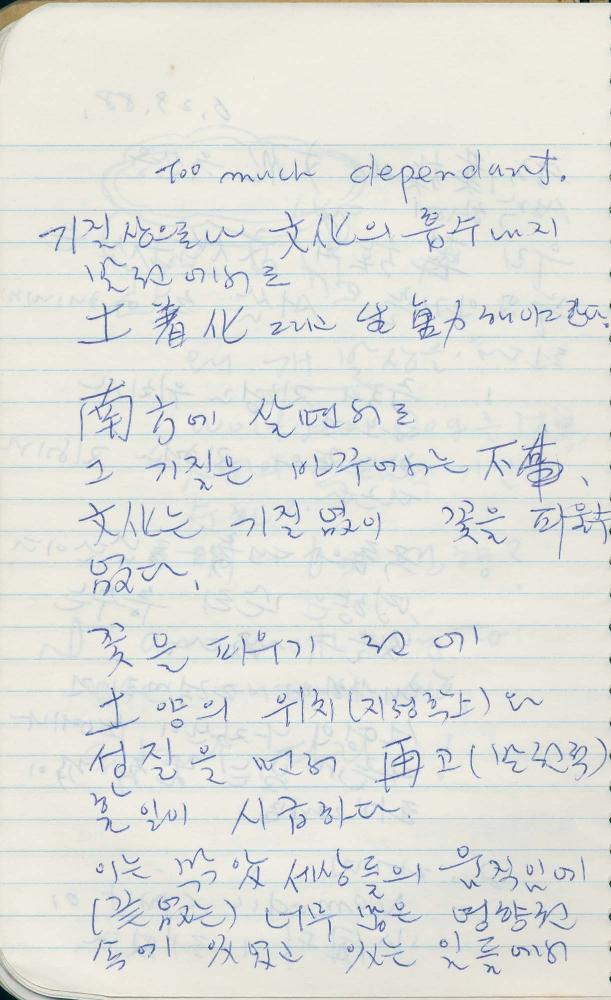 Too much dependant.
기질상으로나 文化의 흡수 내지
발전에서도
土着化 그리고 生動力 해야 한다.
南方에 살면서도
그 기질을 바꾸어서는 不幸,
文化는 기질 없이 꽃을 피울 수
없다.
꽃을 피우기 전에
土양의 위치(지정학상)와
성질을 먼저 再고(발전적)
할 일이 시급하다.
이는 바깥 세상들의 움직임에
(끝없는) 너무 많은 영향권
속에 있었고 있는 일들에서